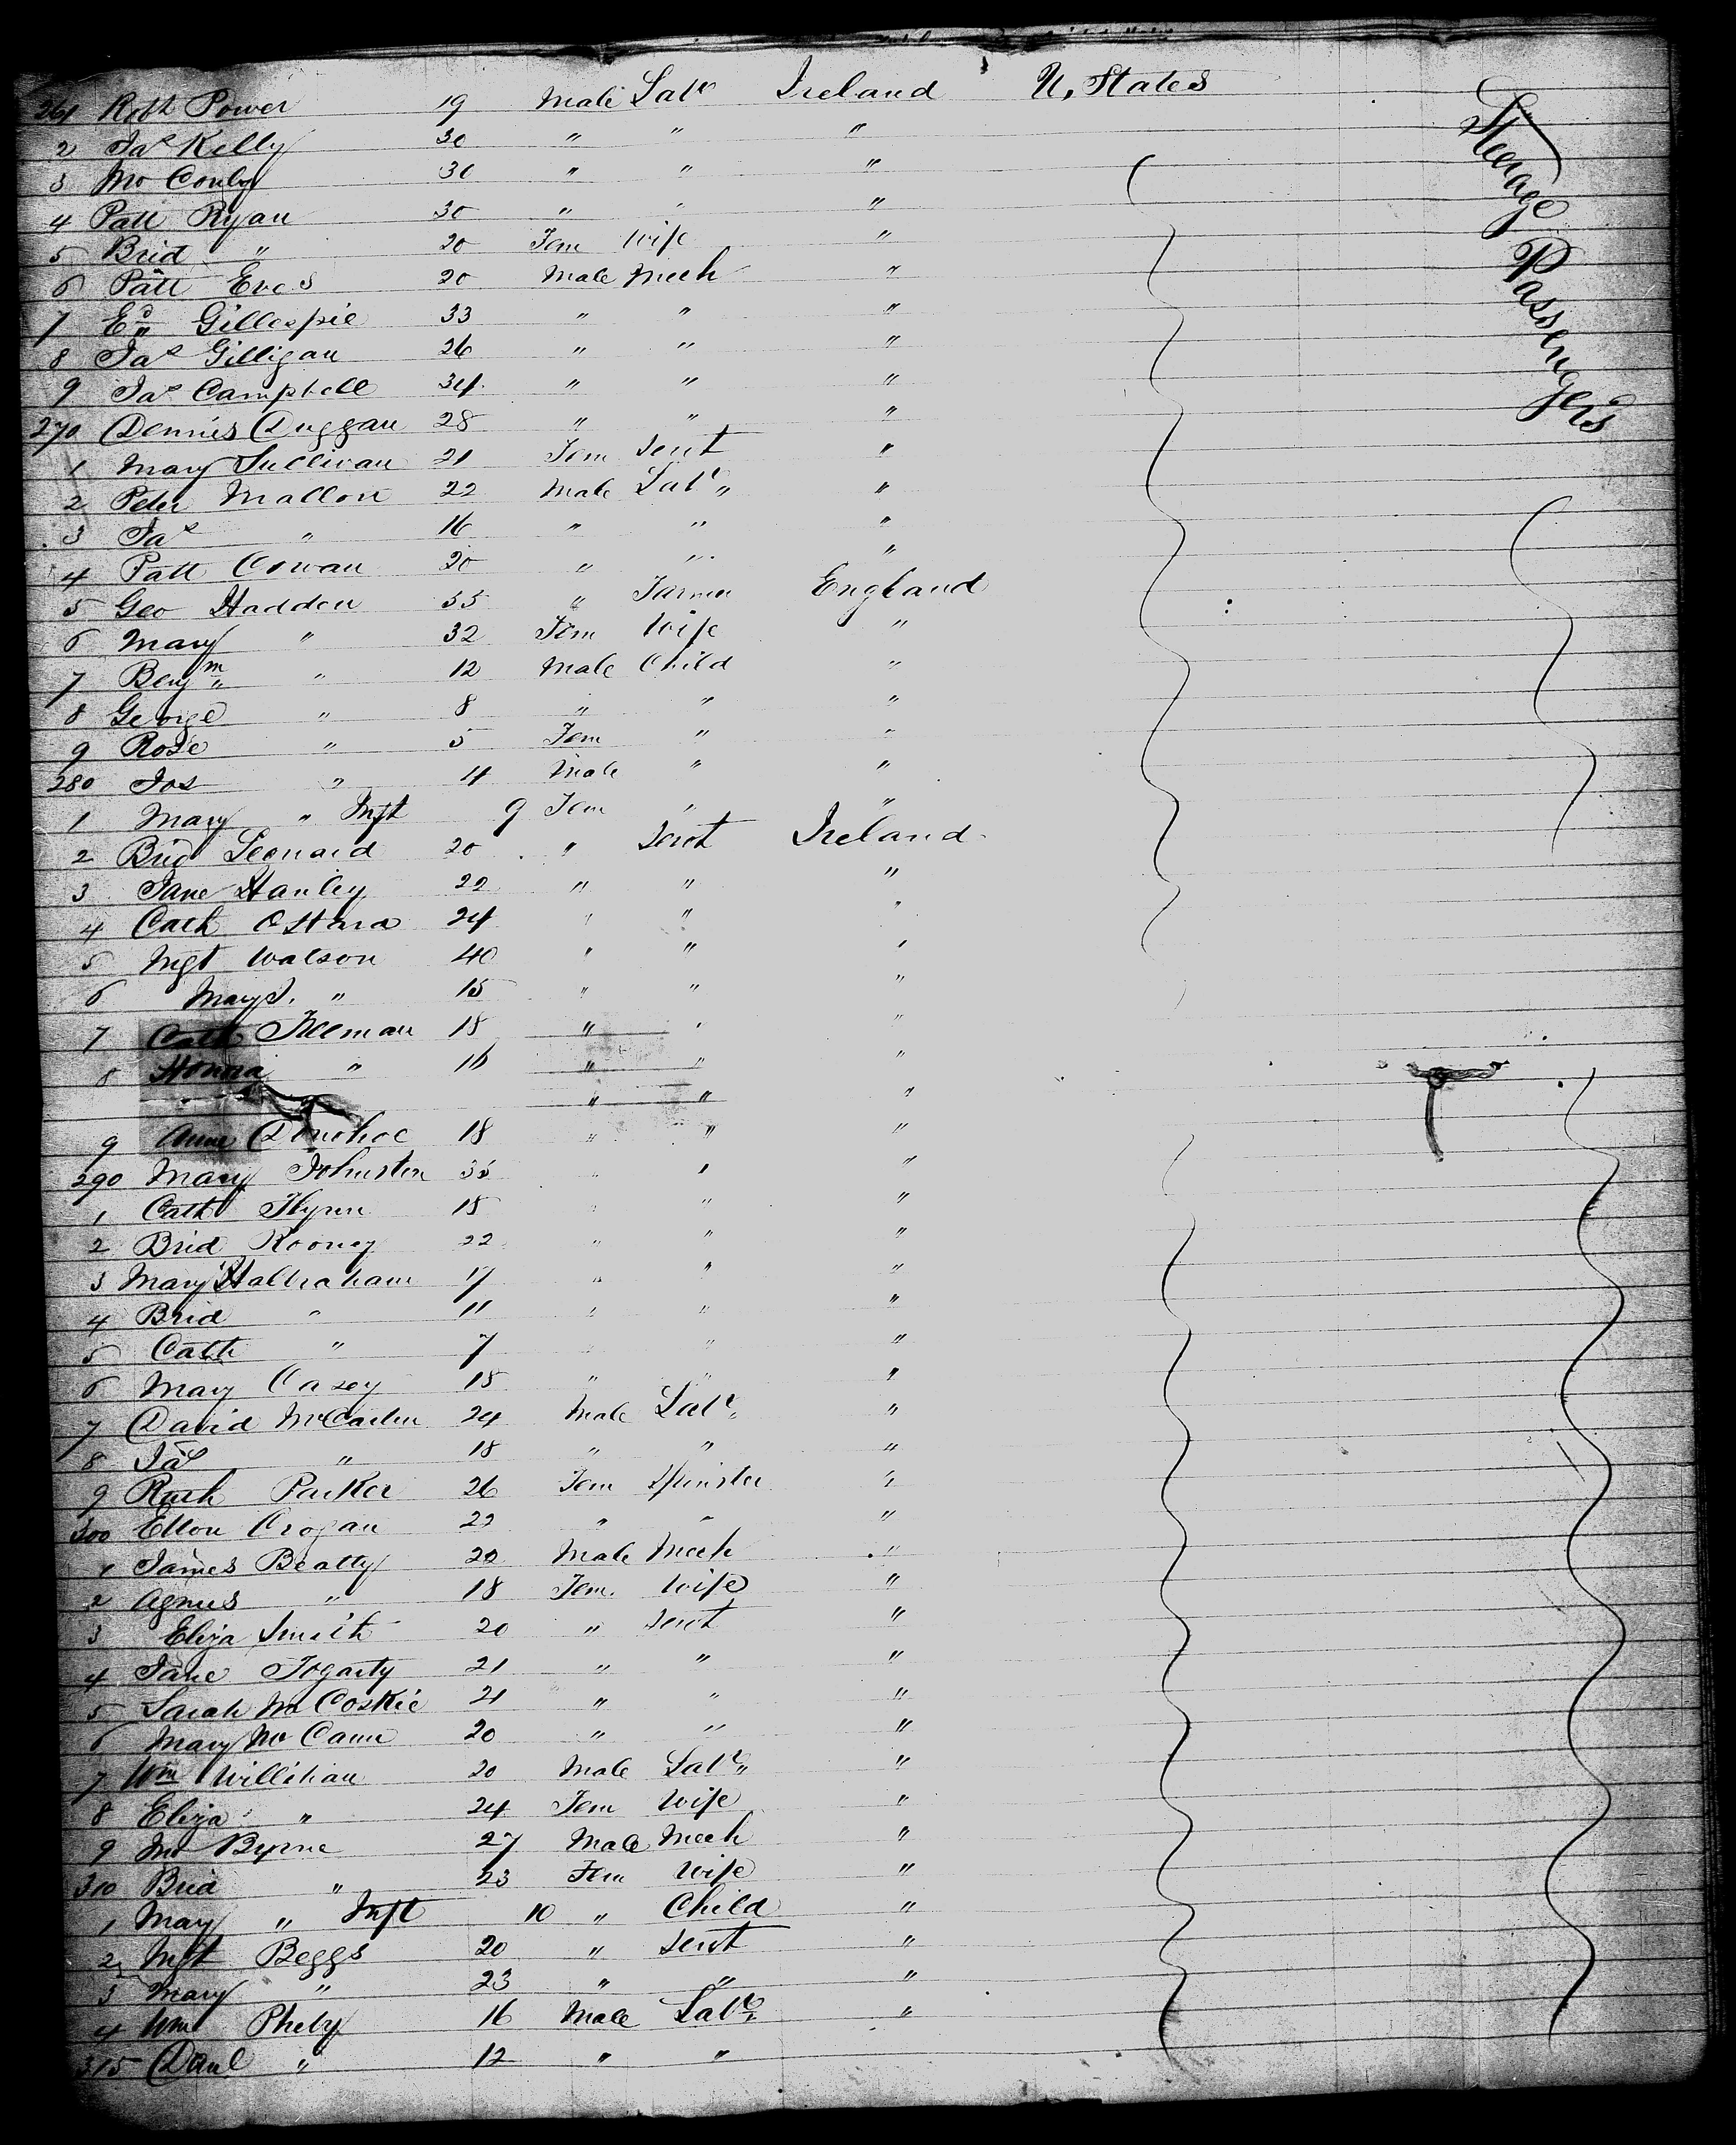 261 Robt Power 19 Male Labr Ireland U, States
2 Jas Kelly 30 " " "
3 Mo Conly 30 " " "
4 Patt Ryan 30 " " "
5 Brid " 20 Fem Wife "
6 Patt Eves 20 Male Mech "
7 Ed Gillespie 33 " " "
8 Jas Gilligan 26 " " "
9 Jas Campbell 34 " " "
270 Dennis Duggan 28 " " "
1 Mary Sullivan 21 Fem Servt "
2 Peter Mallon 22 Male Labr "
3 Jas " 16 " " "
4 Patt Cowan 20 " " "
5 Geo Hadden 33 " Farmer England
6 Mary " 32 Fem Wife "
7 Benjm " 12 Male Child "
8 George " 8 " " "
9 Rose " 5 Fem " "
280 Jos " 4 Male " "
1 Mary " Inft 9 Fem " "
2 Brid Leonard 20 " Servt Ireland
3 Jane Hanley 22 " " "
4 Cath OHara 24 " " "
5 Mgt Watson 40 " " "
6 Mary J. " 15 " " "
7 Cath Freeman 18 " " "
8 Honora " 16 " " "
" " "
9 Anne Donohoe 18 " " "
290 Mary Johnston 35 " " "
1 Cath Flynn 18 " " "
2 Brid Rooney 22 " " "
3 Mary Hallraham 17 " " "
4 Brid " 11 " " "
5 Cath " 7 " " "
6 Mary Casey 18 " " "
7 David McCarten 24 Male Labr "
8 Jas " 18 " " "
9 Rach Parker 26 Fem Spinster "
300 Ellen Crogan 22 " " "
1 James Beatty 20 Male Mech "
2 Agnes " 18 Fem. Wife "
3 Eliza Smith 20 " Servt "
4 Jane Fogarty 21 " " "
5 Sarah Mc Coskie 21 " " "
6 Mary Mc Cann 20 " " "
7 Wm Willihan 20 Male Labr "
8 Eliza " 24 Fem Wife "
9 Jno Byrne 27 Male Mech "
310 Brid " 23 Fem Wife "
1 Mary " Inft 10 " Child "
2 Mgt Beggs 20 " Servt "
3 Mary " 23 " " "
4 Wm Pheby 16 Male Labr "
315 Danl " 12 " "
Steerage Passengers